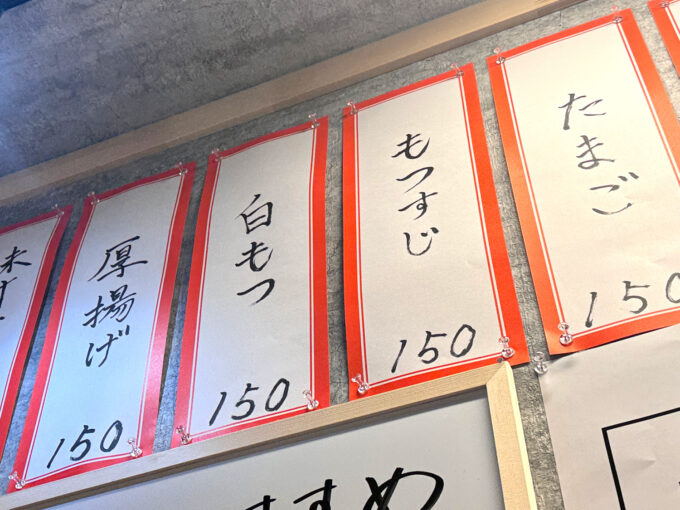 たまご
150
もつすじ
150
白もつ
150
厚揚げ
150
すすめ